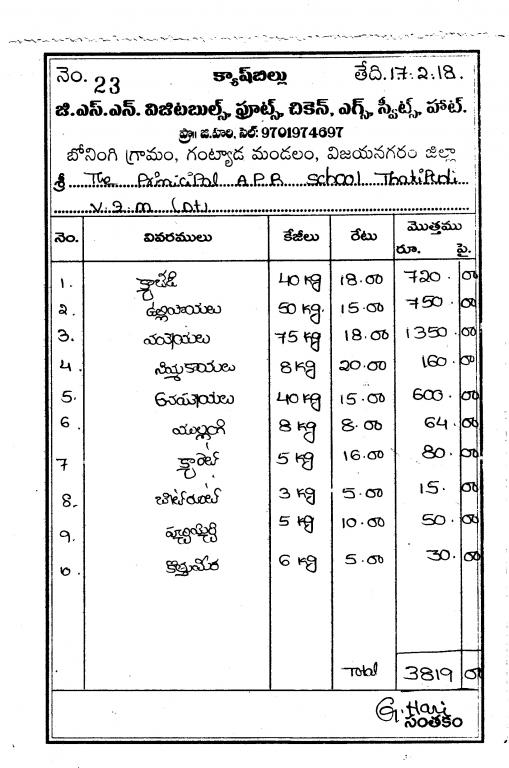 నెం. 23 క్యాష్‌బిల్లు తేది.17.2.18.
జి.ఎస్.ఎన్. విజిటబుల్స్, ఫ్రూట్స్, చికెన్, ఎగ్స్, స్వీట్స్, హాట్.
ప్రొ॥ జి.హరి, సెల్: 9701974697
బోనింగి గ్రామం, గంట్యాడ మండలం, విజయనగరం జిల్లా
శ్రీ The Principal A.P.R School Thatipudi
V.Z.M (Dt)
నెం. వివరములు కేజీలు రేటు మొత్తము
రూ. పై.
1. క్యాబేజి 40 kg 18.00 720.00
2. ఉల్లిపాయలు 50 kg. 15.00 750.00
3. 75 kg 18.00 1350.00
4. నిమ్మకాయలు 8 kg 20.00 160.00
5. 40 kg 15.00 600.00
6 8 kg 8.00 64.00
7 క్యారెట్ 5 kg 16.00 80.00
8. బీట్‌రూట్ 3 kg 5.00 15.00
9. 5 kg 10.00 50.00
10. కొత్తిమీర 6 kg 5.00 30.00
Total 3819 00
G. Hari
సంతకం